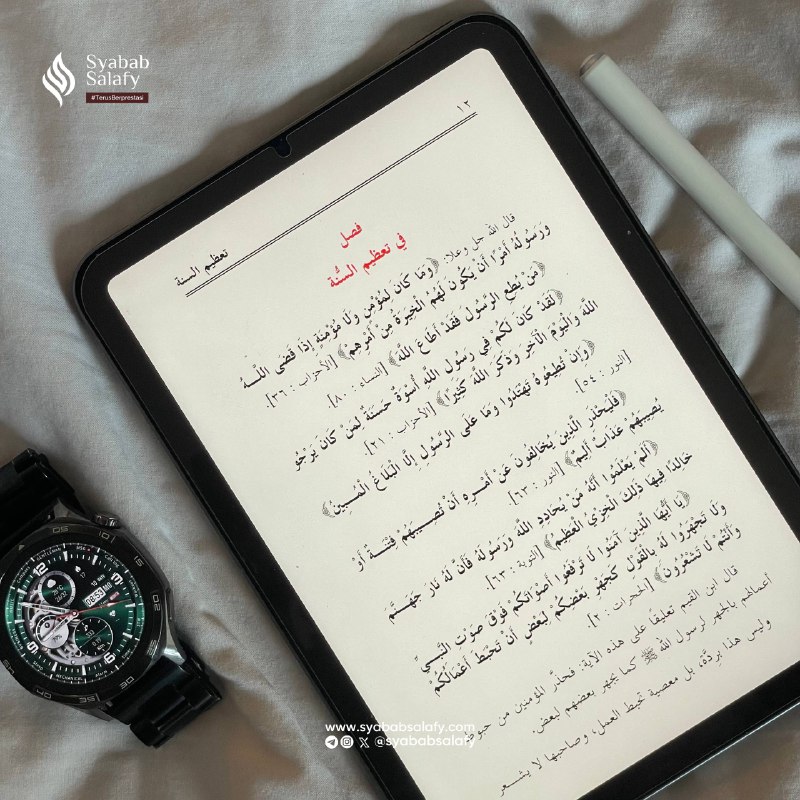 Syabab
Salafy
#TerusBerprestasi
١٢
تعظيم السنة
فصل
في تعظيم السُّنة
قال الله جل وعلا: ﴿وَمَا كَانَ لِمُؤْمِنٍ وَلَا مُؤْمِنَةٍ إِذَا قَضَى اللَّـهُ
وَرَسُولُهُ أَمْرًا أَنْ يَكُونَ لَهُمُ الْخِيَرَةُ مِنْ أَمْرِهِمْ﴾ [الأحزاب : ٣٦].
﴿مَنْ يُطِعِ الرَّسُولَ فَقَدْ أَطَاعَ اللَّهَ﴾ [النساء : ٨٠].
﴿لَقَدْ كَانَ لَكُمْ فِي رَسُولِ اللَّهِ أُسْوَةٌ حَسَنَةٌ لِمَنْ كَانَ يَرْجُو
اللَّهَ وَالْيَوْمَ الْآخِرَ وَذَكَرَ اللَّهَ كَثِيرًا﴾ [الأحزاب : ٢١].
﴿وَإِنْ تُطِيعُوهُ تَهْتَدُوا وَمَا عَلَى الرَّسُولِ إِلَّا الْبَلَاغُ الْمُبِينُ﴾
[النور : ٥٤].
﴿فَلْيَحْذَرِ الَّذِينَ يُخَالِفُونَ عَنْ أَمْرِهِ أَنْ تُصِيبَهُمْ فِتْنَةٌ أَوْ
يُصِيبَهُمْ عَذَابٌ أَلِيمٌ﴾ [النور : ٦٣].
﴿أَلَمْ يَعْلَمُوا أَنَّهُ مَنْ يُحَادِدِ اللَّهَ وَرَسُولَهُ فَأَنَّ لَهُ نَارَ جَهَنَّمَ
خَالِدًا فِيهَا ذَلِكَ الْخِزْيُ الْعَظِيمُ﴾ [التوبة : ٦٣].
﴿يَا أَيُّهَا الَّذِينَ آمَنُوا لَا تَرْفَعُوا أَصْوَاتَكُمْ فَوْقَ صَوْتِ النَّبِيِّ
وَلَا تَجْهَرُوا لَهُ بِالْقَوْلِ كَجَهْرِ بَعْضِكُمْ لِبَعْضٍ أَنْ تَحْبَطَ أَعْمَالُكُمْ
وَأَنْتُمْ لَا تَشْعُرُونَ﴾ [الحجرات : ٢].
قال ابن القيم تعليقًا على هذه الآية: فحذَّر المؤمنين من حبوط
أعمالهم بالجهر لرسول الله ﷺ كما يجهر بعضهم لبعض.
وليس هذا بِردَّة، بل معصية تحبط العمل، وصاحبها لا يشعر
www.syababsalafy.com
@syababsalafy